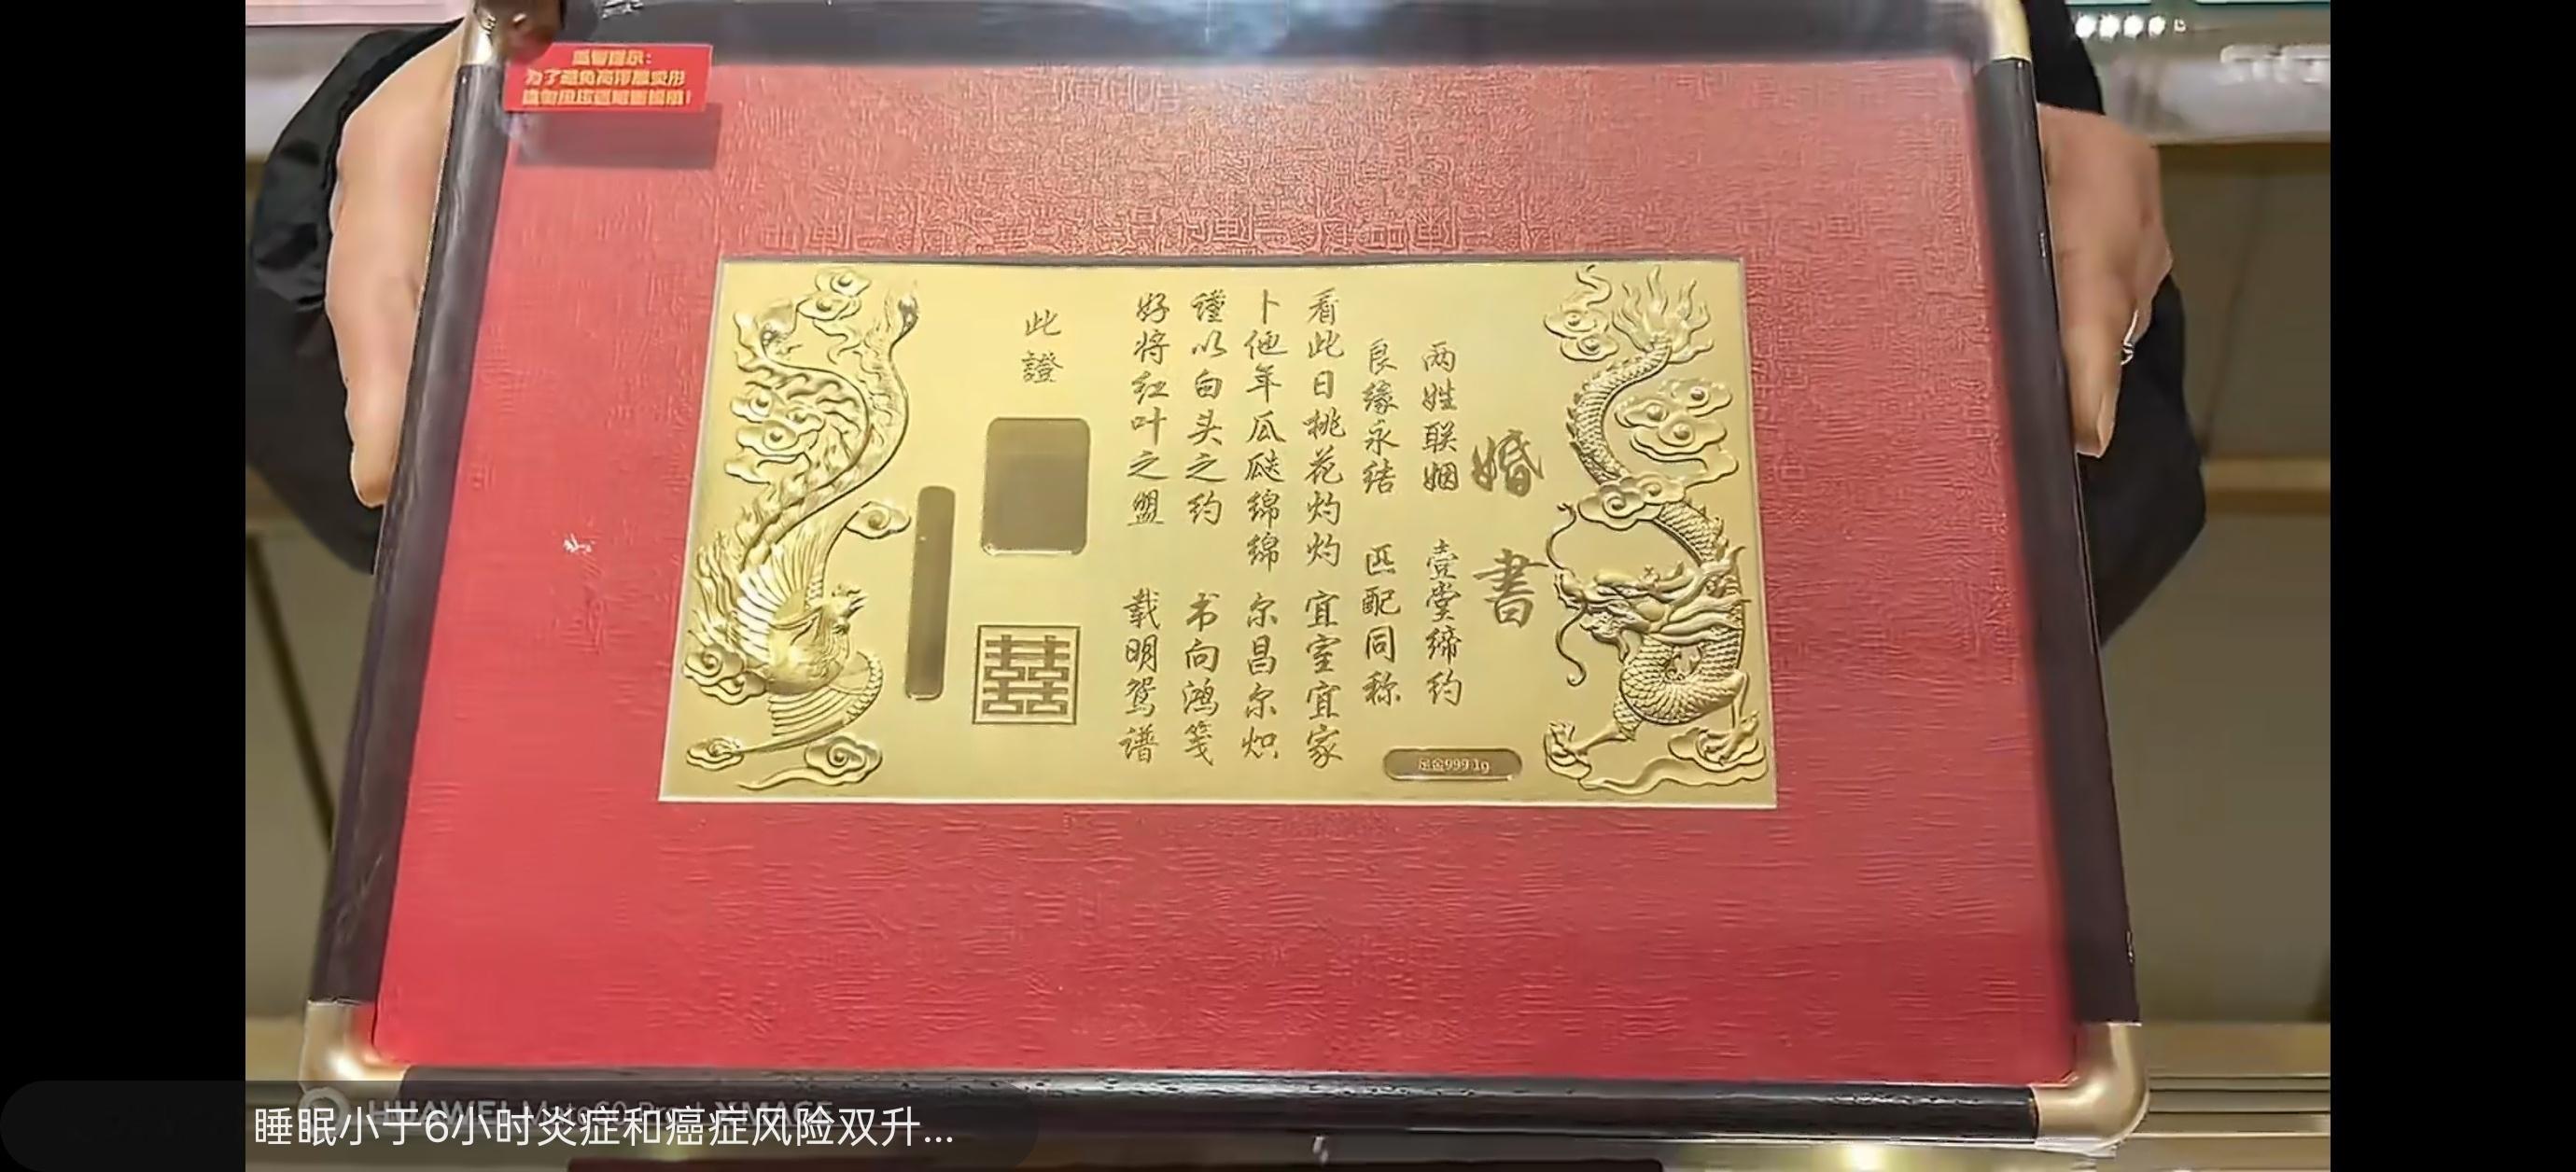 温馨提示：
为了避免高浮雕变形
婚書
两姓联姻 壹堂缔约
良缘永结 匹配同称
看此日桃花灼灼 宜室宜家
卜他年瓜瓞绵绵 尔昌尔炽
谨以白头之约 书向鸿笺
好将红叶之盟 载明鸳谱
此證
囍
足金999 1g
睡眠小于6小时炎症和癌症风险双升...